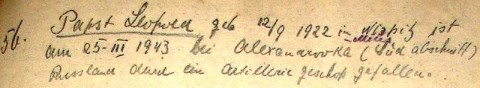 56. Papst Leopold geb 12/9 1922 in ist
am 25-III 1943 bei Alexandrowka (Südabschnitt)
Russland durch ein Artillerie geschoß gefallen.